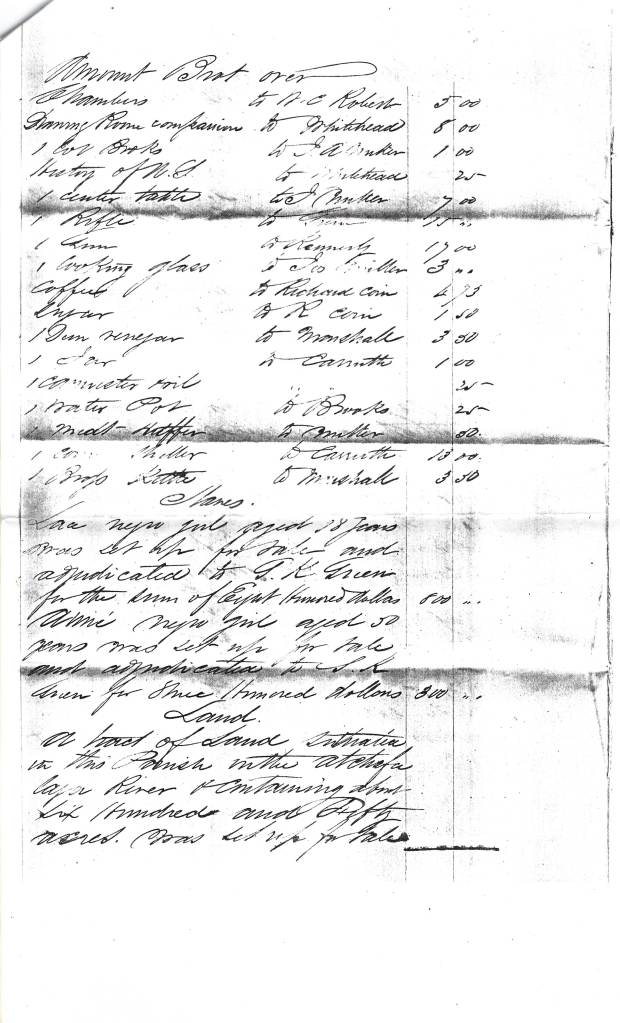 Amount Brot over
Chambers to W C Robert 5 00
Drawing Room companion to Whitehead 8 00
1 Lot Books to J A 1 00
History of U.S. to Whitehead 25
1 center table to J 7 00
1 Rifle to 15 "
1 to Kennerly 17 00
1 Looking glass to Jas Miller 3 "
Coffee to Richard coin 4 73
Sugar to R coin 1 50
1 Dem venegar to Marshall 3 50
1 Jar to Carruth 1 00
1 cannister " " 25
1 Water Pot to Brooks 25
1 to 50
1 corn Sheller to Carruth 13 00
1 Brass Kettle to Marshall 3 50
Slaves.
negro girl aged years
was set up for sale and
adjudicated to S. K Green
for the sum of Eight Hundred dollars 800 "
negro girl aged 50
years was set up for sale
and adjudicated to S. K
Green for three Hundred dollars 300 "
Land.
A tract of Land situated
in this Parish on the atchafa
laya River & containing about
six Hundred and Fifty
acres. was set up for sale